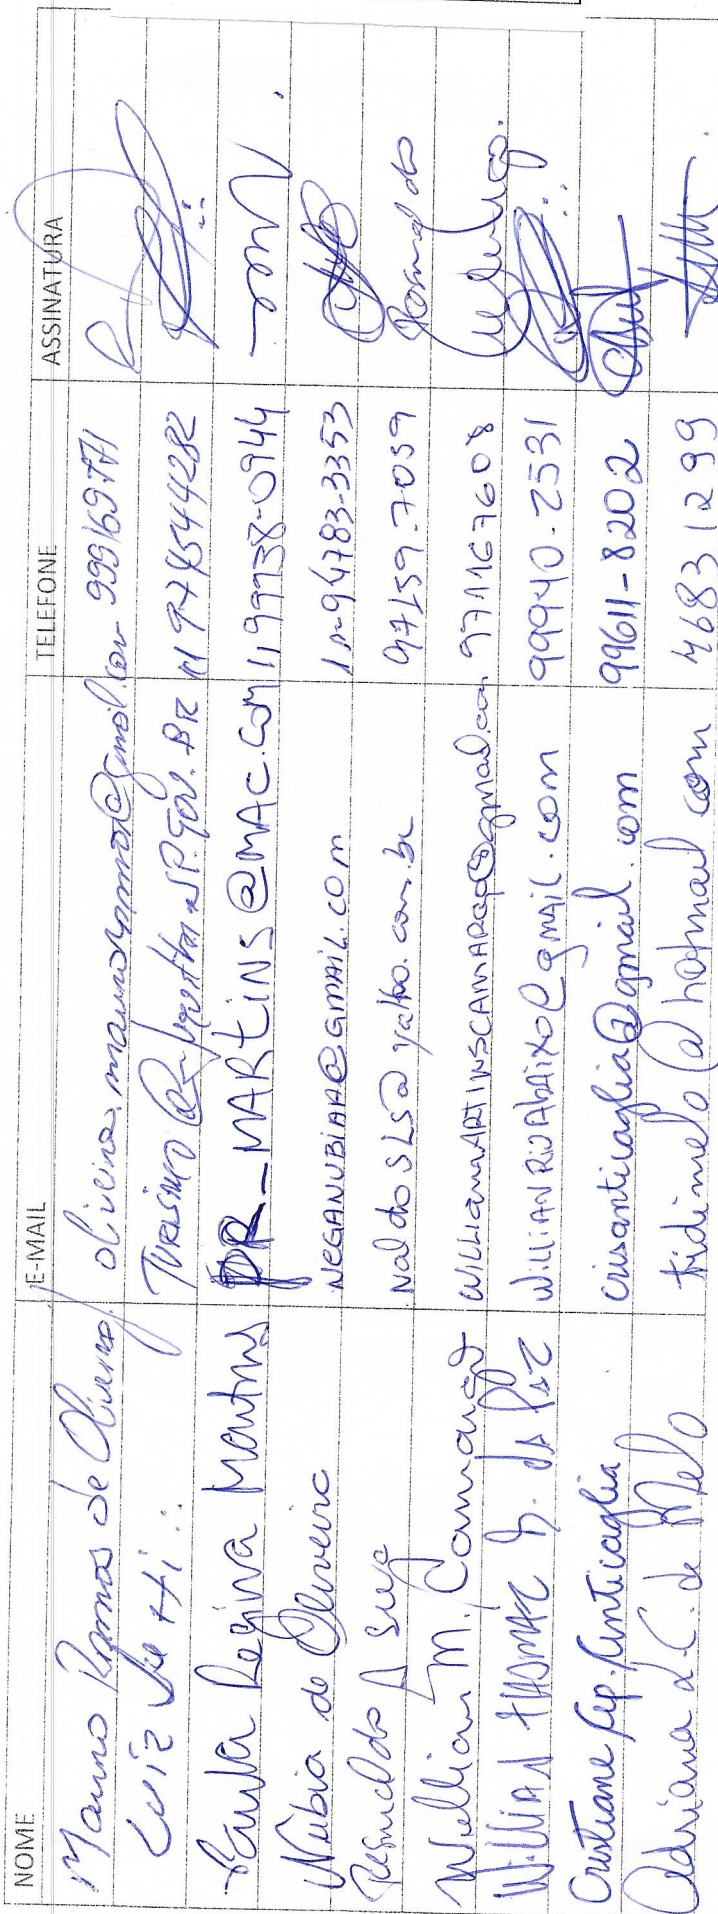 NOME E-MAIL TELEFONE ASSINATURA
Mauro Ramos de Oliveira oliveira.mauroramos@gmail.com 999169771
Luiz 11 974544282
Paula Regina Martins PR_MARTINS@MAC.COM 11 99938-0944
Nubia de Oliveira NEGANUBIAH@GMAIL.COM 11-94783-3353
Ronaldo A Silva naldosls@yahoo.com.br 97159-7059 Ronaldo
Willian M. Camargo WILLIAMMARTINSCAMARGO@gmail.com 971167608
WILLIAN THOMAZ G. da PAZ WILLIANRIOABAIXO@gmail.com 99940-2531
Cristiane Ap. Anticaglia crisanticaglia@gmail.com 99611-8202
Adriana L.C. de Melo tidimelo@hotmail com 46831299